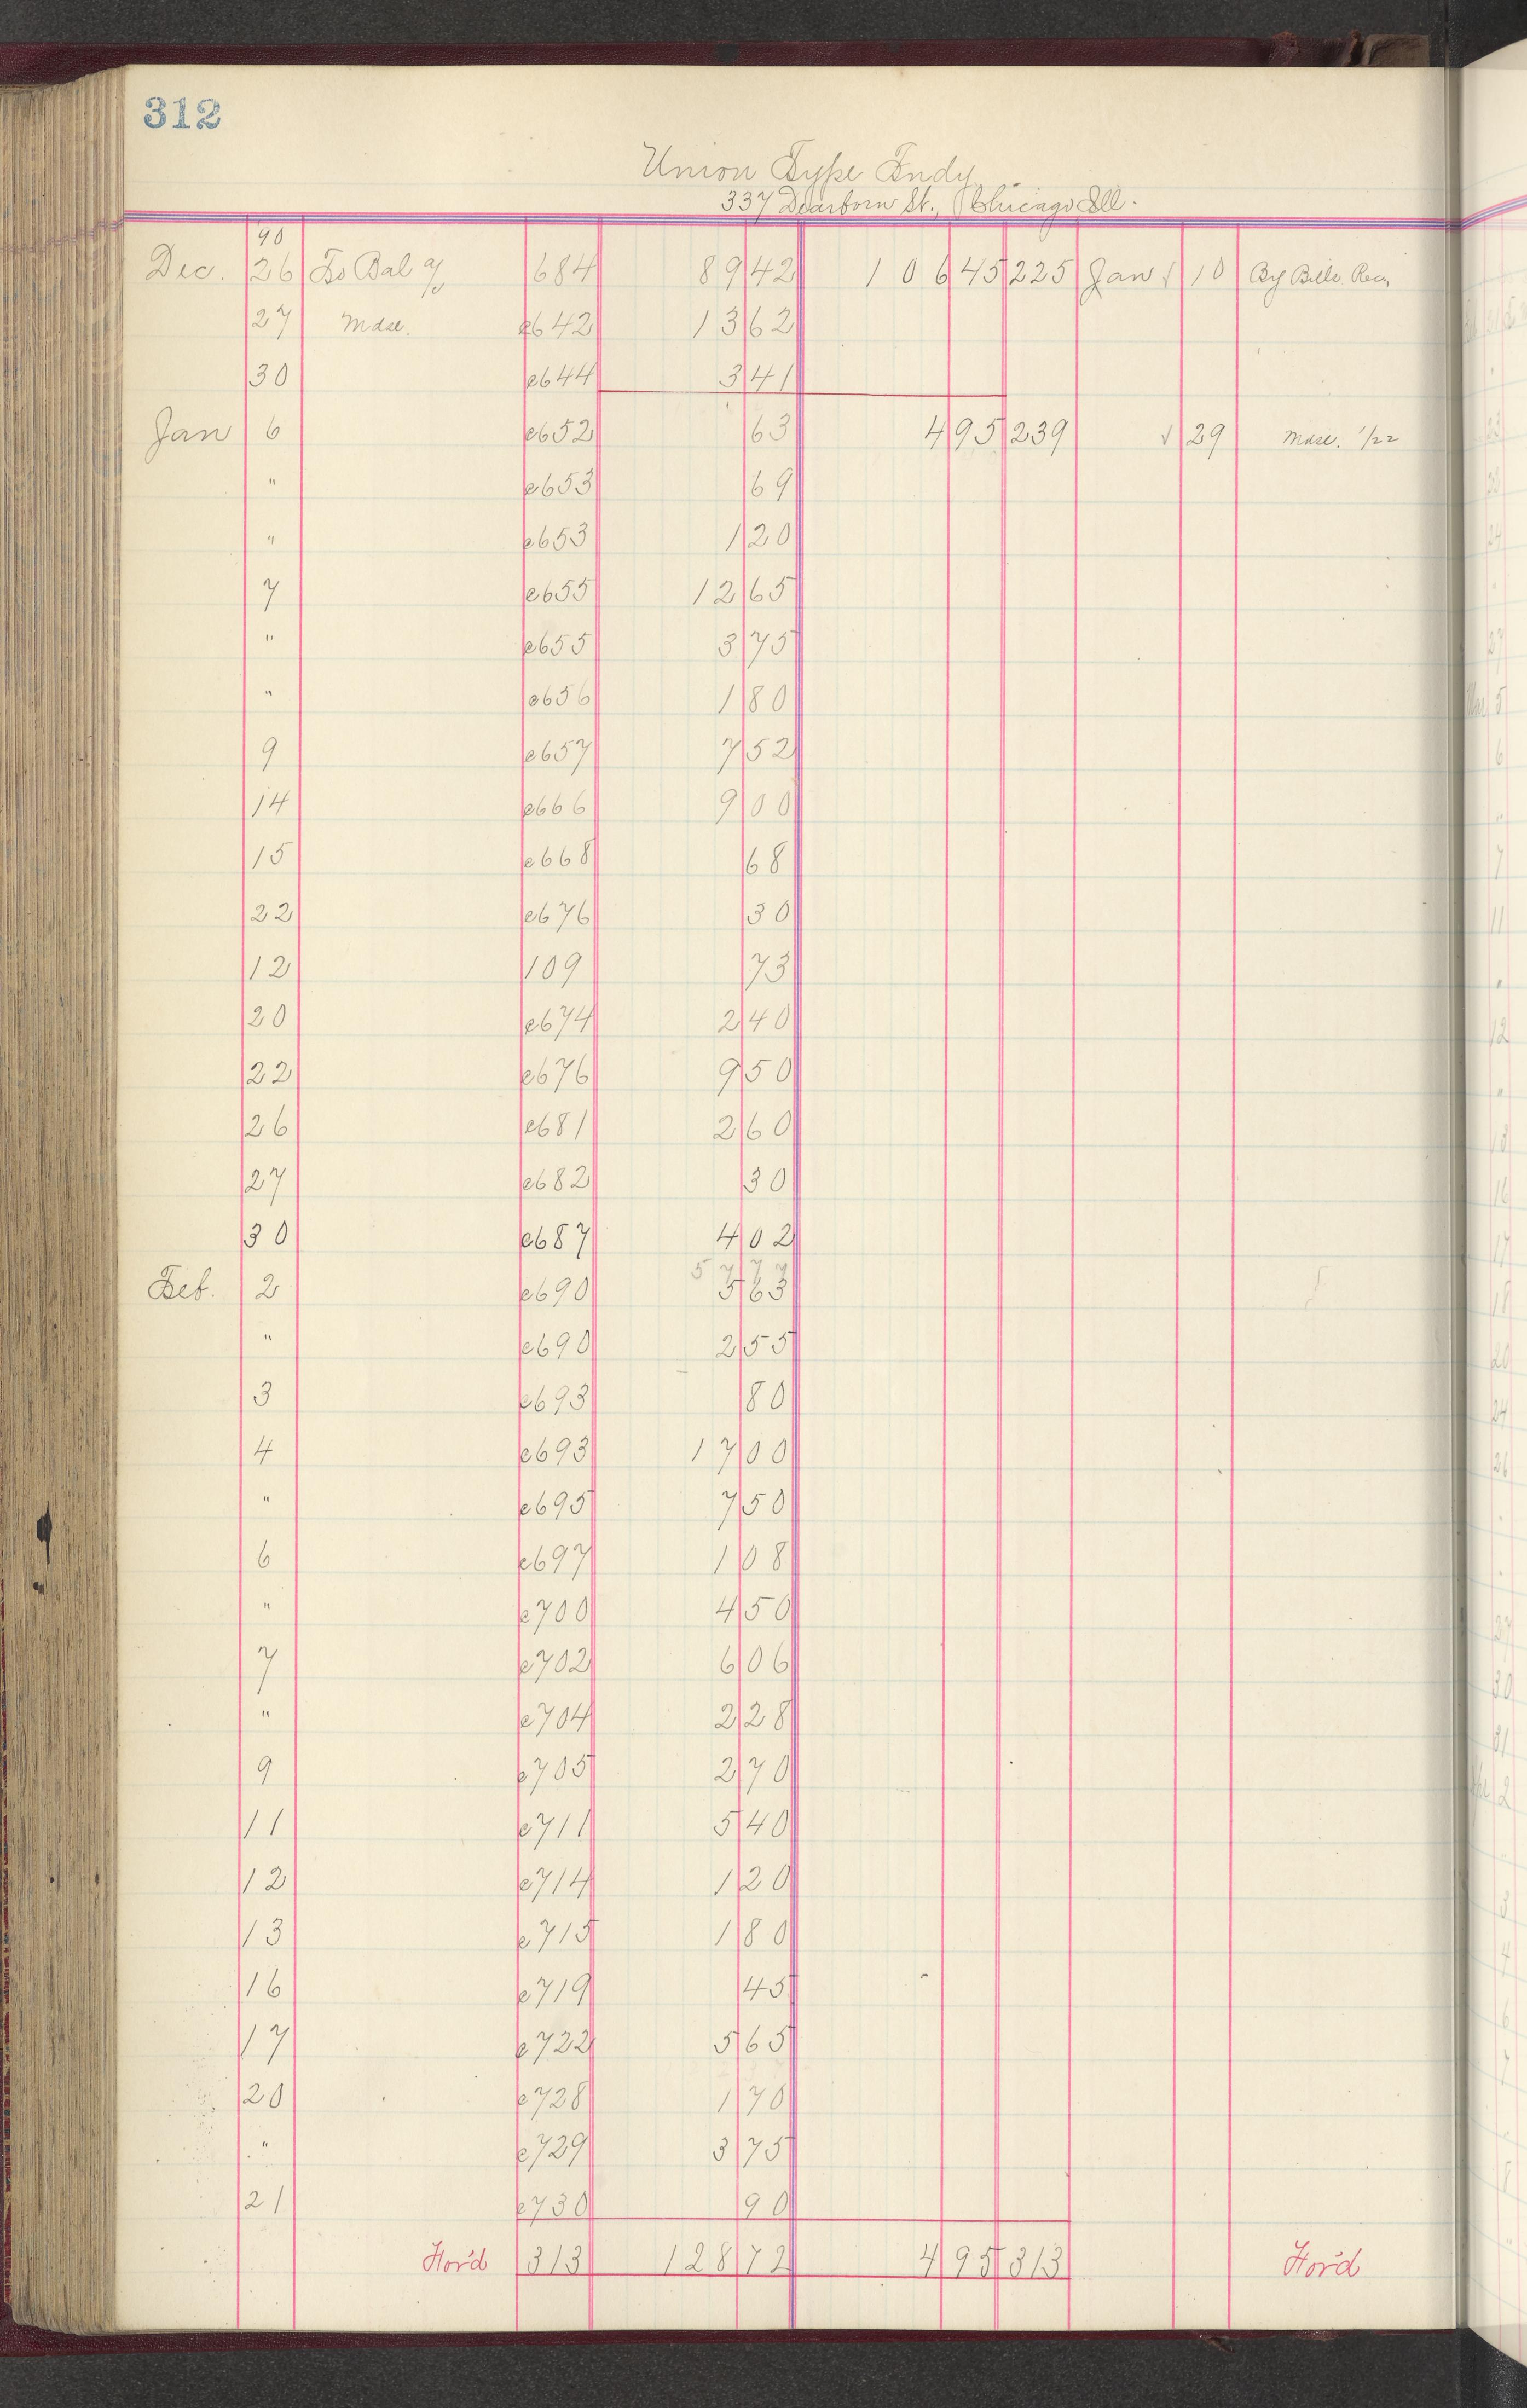 312
Union Type Fndy
337 Dearborn St., Chicago Ill.
90
Dec. 26 To Bal 684 89 42 106 45 225 Jan √ 10 By Bills Rec
27 Mdse. c642 13 62
30 c644 3 41
Jan 6 c652 63 4 95 239 √ 29 Mdse. 1/22
" c653 69
" c653 1 20
7 c655 12 65
" c655 3 75
" c656 1 80
9 c657 7 52
14 c666 9 00
15 c668 68
22 c676 30
12 109 73
20 c674 2 40
22 c676 9 50
26 c681 2 60
27 c682 30
30 c687 4 02
57 77
Feb. 2 c690 5 63
" c690 2 55
3 c693 80
4 c693 17 00
" c695 7 50
6 c697 1 08
" c700 4 50
7 c702 6 06
" c704 2 28
9 c705 2 70
11 c711 5 40
12 c714 1 20
13 c715 1 80
16 c719 45
17 c722 5 65
20 c728 1 70
" c729 3 75
21 c730 90
For'd 313 128 72 4 95 313 For'd